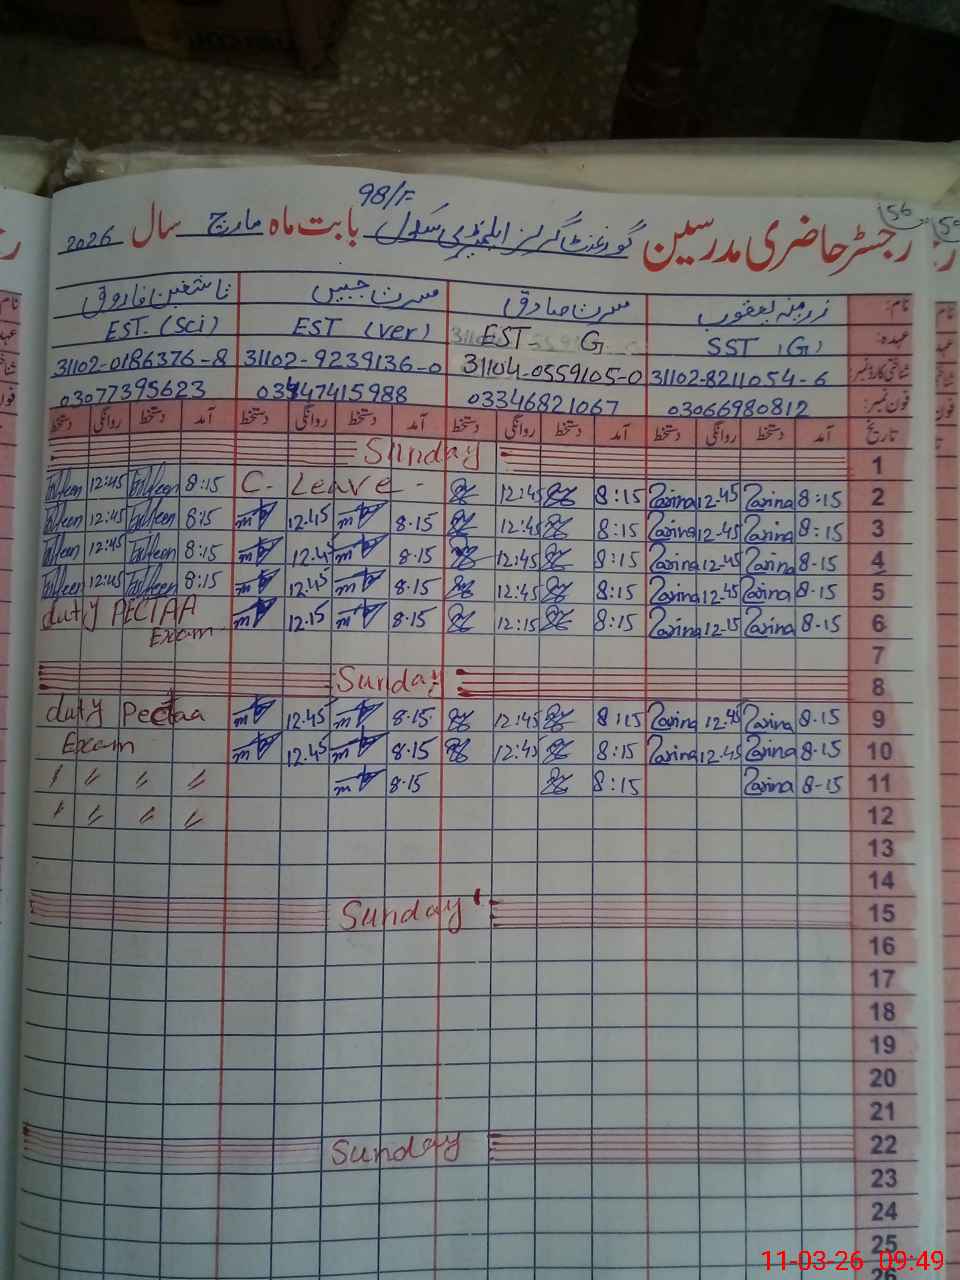 98/F
56
رجسٹر حاضری مدرسین گورنمنٹ گرلز ایلیمنٹری سکول بابت ماہ مارچ سال 2026
نام: زرمینہ یعقوب مسرت صادق مسرت جبیں تاشفین فاروق
عہدہ: SST (G) EST - G EST (ver) EST. (Sci)
شناختی کارڈ نمبر: 31102-8211054-6 31104-0559105-0 31102-9239136-0 31102-0186376-8
فون نمبر: 03066980812 03346821067 03447415988 03077395623
تاریخ آمد دستخط روانگی دستخط آمد دستخط روانگی دستخط آمد دستخط روانگی دستخط آمد دستخط روانگی دستخط
Sunday 1
12:45 8:15 C. Leave - 12:45 8:15 Zarina 12.45 Zarina 8:15 2
12:45 8:15 12.45 8.15 12:45 8:15 Zarina 12.45 Zarina 8:15 3
12:45 8:15 12.45 8.15 12:45 8:15 Zarina 12.45 Zarina 8.15 4
12:45 8:15 12.45 8.15 12:45 8:15 Zarina 12.45 Zarina 8.15 5
duty PECTAA 12.15 8.15 12:15 8:15 Zarina 12.15 Zarina 8.15 6
Exam
7
Sunday 8
duty Pectaa 12.45 8.15 12:45 8:15 Zarina 12.45 Zarina 8.15 9
Exam 12.45 8.15 12:45 8:15 Zarina 12.45 Zarina 8.15 10
〃 〃 〃 〃 8.15 8:15 Zarina 8-15 11
〃 〃 〃 〃 12
13
14
Sunday 15
16
17
18
19
20
21
Sunday 22
23
24
25
26
11-03-26 09:49